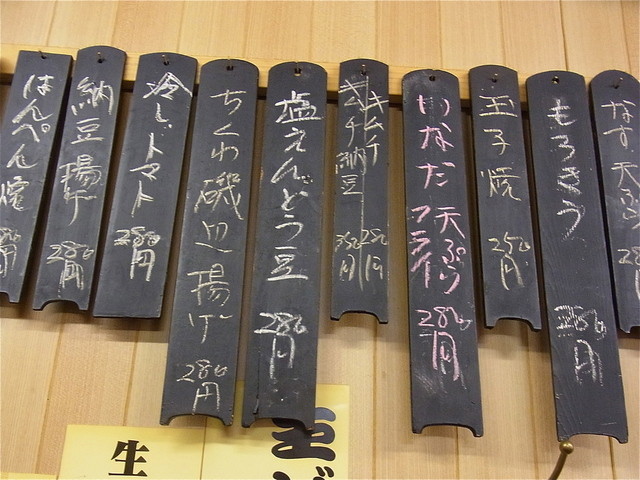 なす天ぷら
もろきう
280円
玉子焼
250円
いなだ 天ぷら
フライ
280円
キムチ
280円
キムチ納豆
350円
塩えんどう豆
280円
ちくわ磯辺揚げ
280円
冷しトマト
280円
納豆揚げ
280円
はんぺん焼
生